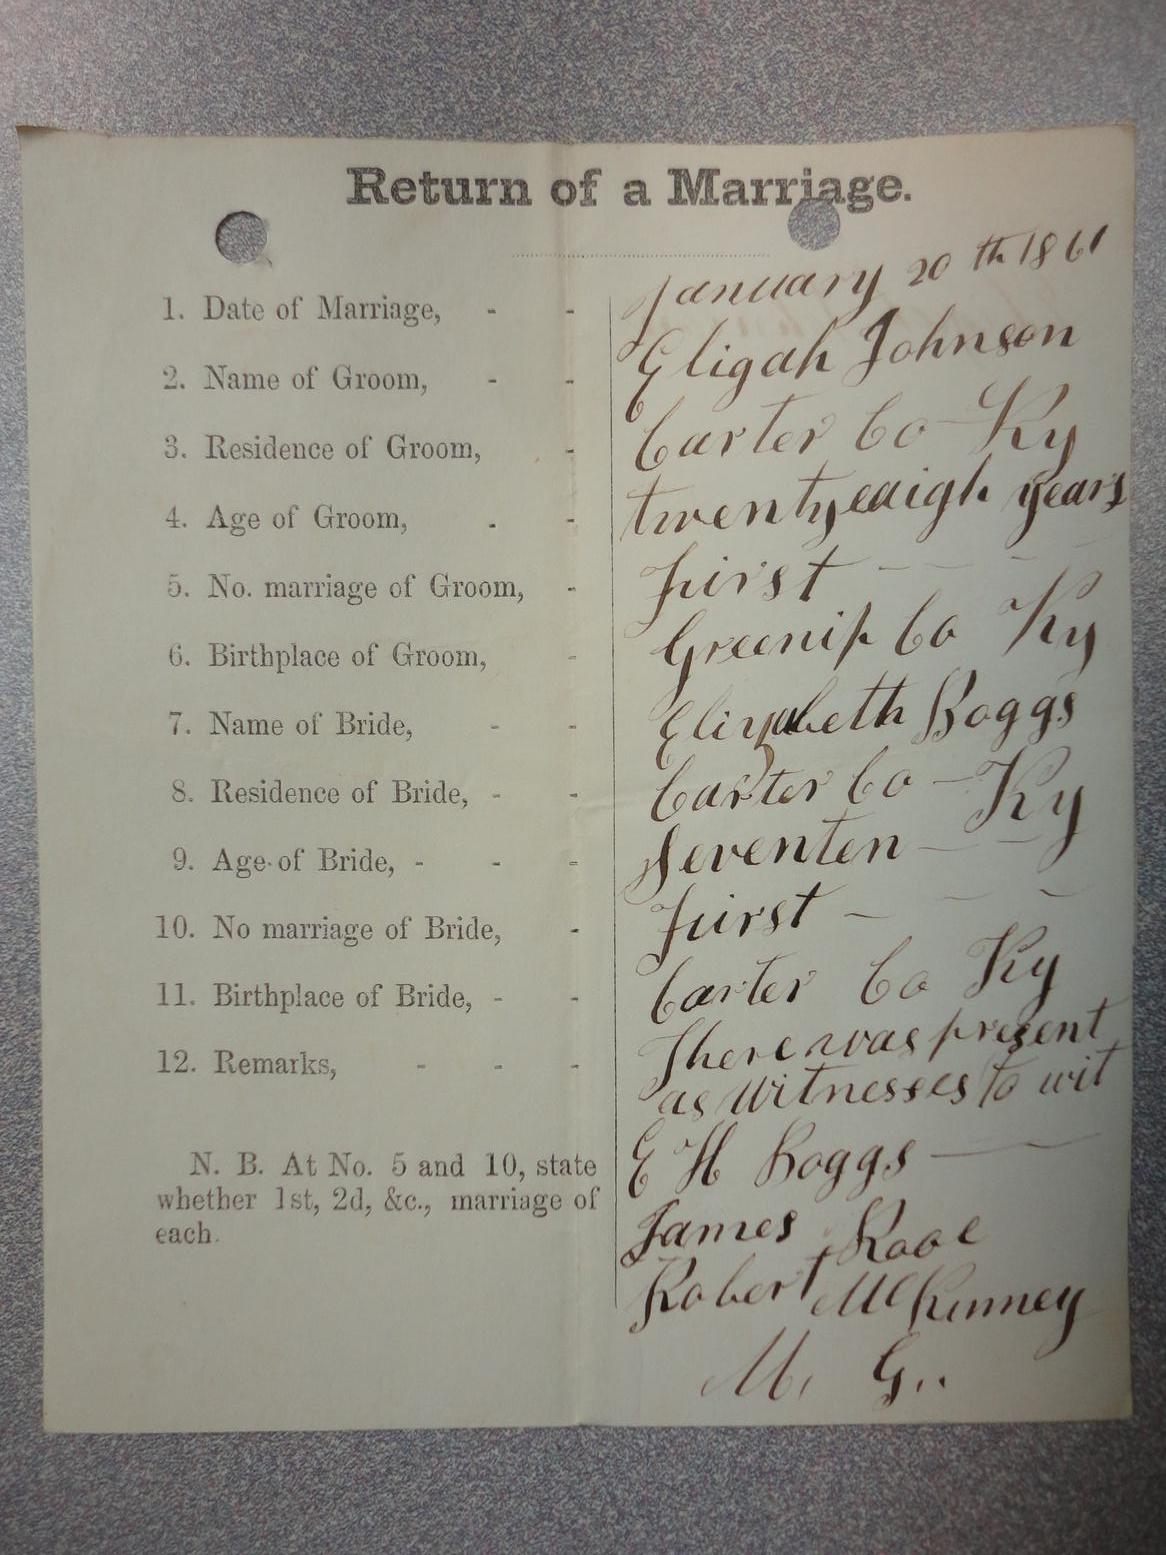 Return of a Marriage.
1. Date of Marriage, - - January 20th 1861
2. Name of Groom, - - Eligah Johnson
3. Residence of Groom, - Carter Co Ky
4. Age of Groom, - - twentyeaigh years
5. No. marriage of Groom, - First
6. Birthplace of Groom, - Greenip Co Ky
7. Name of Bride, - - Elizabeth Boggs
8. Residence of Bride, - - Carter Co - Ky
9. Age of Bride, - - - Seventen
10. No marriage of Bride, - First
11. Birthplace of Bride, - - Carter Co Ky
12. Remarks, - - - There was present
as Witnesses to wit
N. B. At No. 5 and 10, state
whether 1st, 2d, &c., marriage of
each.
E H Boggs
James
Robert McKinney
M. G..